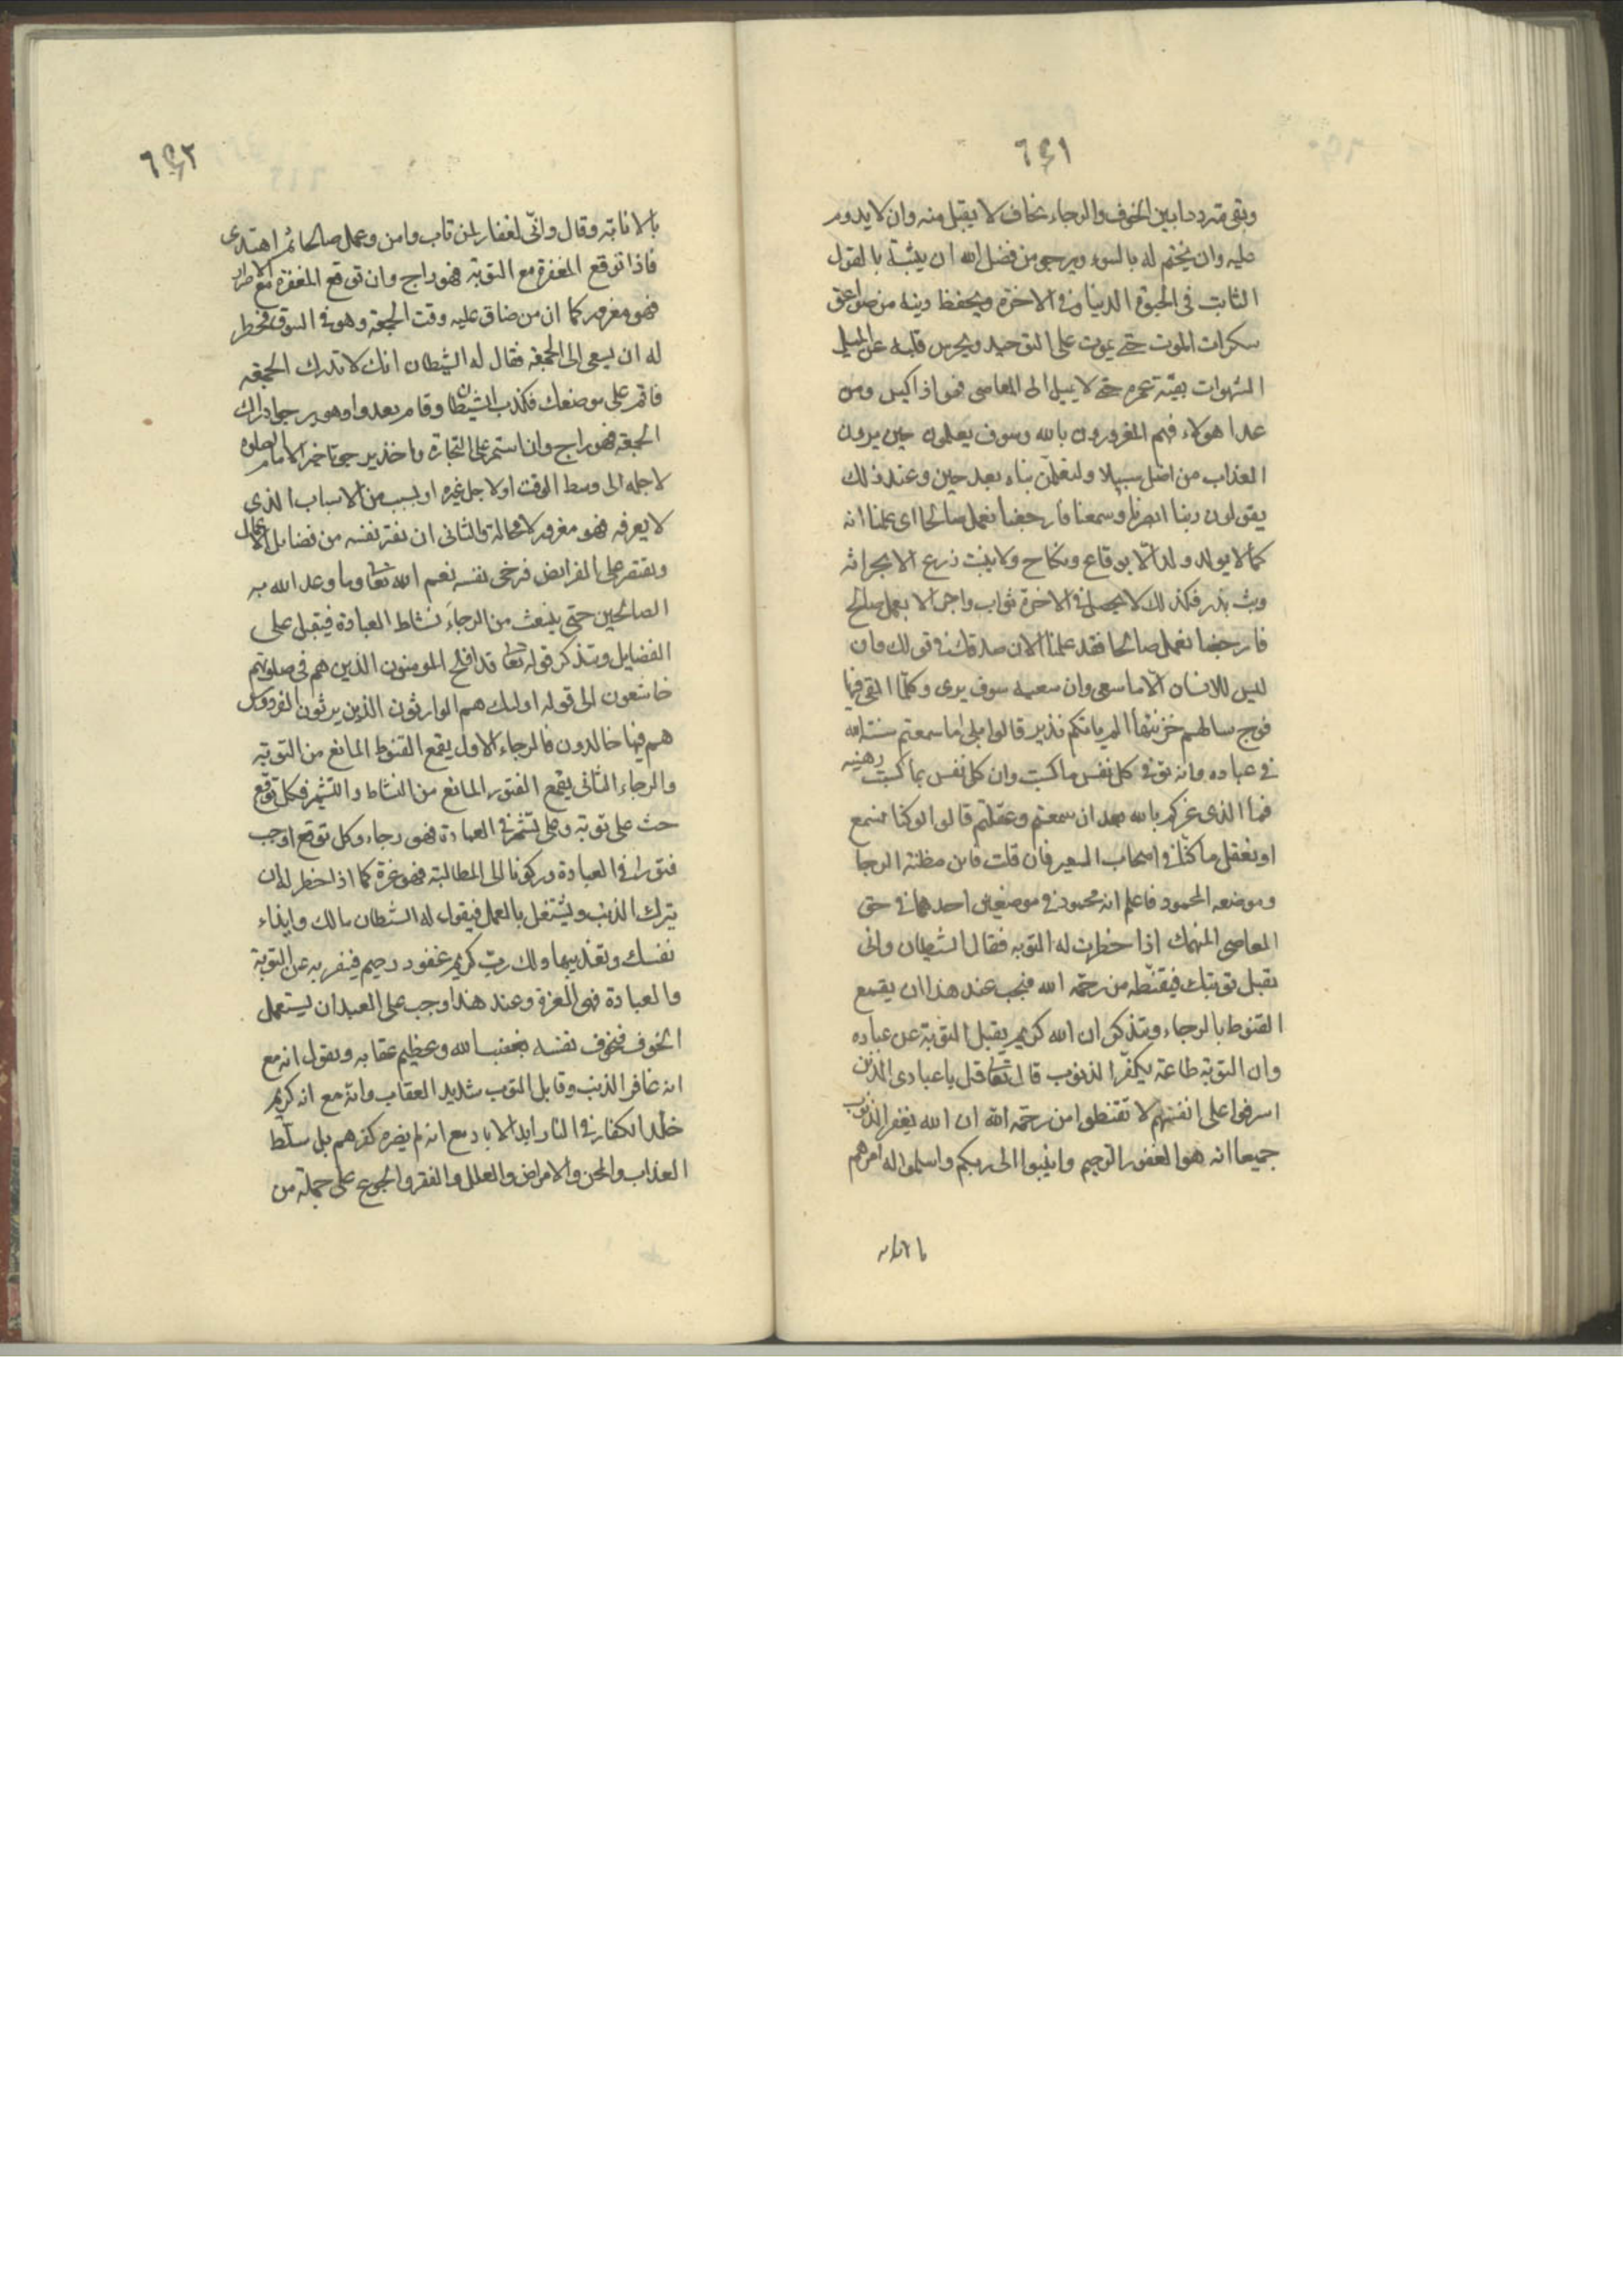 ٦٤١
وبقى مترددا بين الخوف والرجاء يخاف لا يقبل منه وان لا يدوم
عليه وان يختم له بالسوء ويرجو من فضل الله ان يثبته بالقول
الثابت فى الحيوة الدنيا وفى الاخرة ويحفظ دينه من صواعق
سكرات الموت حتى يموت على التوحيد ويحرس قلبه عن الميل
الشهوات بقية عمره حتى لا يميل الى المعاصى فهو اذا كيس ومن
عدا هولاء فهم المغرورون بالله وسوف يعلمون حين يرون
العذاب من اضل سبيلا ولتعلمن نباه بعد حين وعند ذلك
يقولون ربنا ابصرنا وسمعنا فارجعنا نعمل صالحا اى علمنا انه
كما لا يولد ولد الا بوقاع ونكاح ولا ينبت زرع الا بحراثه
وبث بذر فكذلك لا يحصل فى الاخرة ثواب واجر الا بعمل صالح
فارجعنا نعمل صالحا فقد علمنا الان صدقك فى قولك وان
ليس للانسان الا ما سعى وان سعيه سوف يرى وكلما القى فيها
فوج سالهم خزنتها الم ياتكم نذير قالوا بلى اما سمعتم سنته الله
فى عباده وانه توفى كل نفس ما كسبت وان كل نفس بما كسبت رهينه
فما الذى غركم بالله بعد ان سمعتم وعقلتم قالوا لو كنا نسمع
او نعقل ما كنا فى اصحاب السعير فان قلت فاين مظنة الرجا
وموضعه المحمود فاعلم انه محمود فى موضعين احدهما فى حق
العاصى المنهمك اذا خطرت له التوبه فقال الشيطان وانى
يقبل توبتك فيقنطه من رحمة الله فيجب عند هذا ان يقمع
القنوط بالرجاء ويتذكر ان الله كريم يقبل التوبة عن عباده
وان التوبة طاعة يكفر الذنوب قال تعا قل يا عبادى الذين
اسرفوا على انفسهم لا تقنطوا من رحمة الله ان الله يغفر الذنوب
جميعا انه هو الغفور الرحيم وانيبوا الى ربكم واسلموا له امرهم
بالانابه
٦٤٢
بالانابته وقال وانى لغفار لمن تاب وامن وعمل صالحا ثم اهتدى
فاذا توقع المغفرة مع التوبة فهو راج وان توقع المغفرة مع الاصرار
فهو مغرور كما ان من ضاق عليه وقت الجمعة وهو فى السوق فخطر
له ان يسعى الى الجمعة فقال له الشيطان انك لا تدرك الجمعة
فاقم على موضعك فكذب الشيطان وقام يعدوا وهو يرجوا دراك
الجمعة فهو راج وان استمر على التجارة واخذ يرجو تاخير الامام الصلوه
لاجله الى وسط الوقت او لاجل غيره او لسبب من الاسباب الذى
لا يعرفه فهو مغرور لا محالة والثانى ان تفتر نفسه من فضايل الاعمال
ويقتصر على الفرايض فرجى نفسه نعم الله تعا وما وعد الله به
الصالحين حتى ينبعث من الرجاء نشاط العبادة فيقبل على
الفضايل ويتذكر قوله تعا قد افلح المومنون الذين هم فى صلوتهم
خاشعون الى قوله اوليك هم الوارثون الذين يرثون الفردوس
هم فيها خالدون فالرجاء الاول يقمع القنوط المانع من التوبه
والرجاء الثانى يقمع الفتور المانع من النشاط والتشمر فكل توقع
حث على توبه وعلى تشمر فى العبادة فهو رجاء وكل توقع اوجب
فتورا فى العبادة وركونا الى المطالبته فهو غرة كما اذا خطر له ان
يترك الذنب ويشتغل بالعمل فيقول له الشيطان مالك وايذاء
نفسك وتعذيبها ولك رب كريم غفور رحيم فيفتر به عن التوبة
والعبادة فهى الغرة وعند هذا وجب على العبد ان يستعمل
الخوف فيخوف نفسه بغضب الله وعظيم عقابه ويقول انه مع
انه غافر الذنب وقابل التوب شديد العقاب وانه مع انه كريم
خلد الكفار فى النار ابد الاباد مع انه لم يضره كفرهم بل سلط
العذاب والمحن والامراض والعلل والفقر والجوع على جملة من